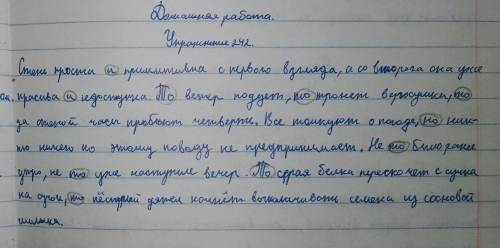 Домашняя работа.
Упражнение 242.
Степь проста и примитивна с первого взгляда, а со второго она уже
красива и недоступна. То ветер подует, то тронет верхушки, то
за стеной часы пробьют четверть. Все толкуют о погоде, но ник-
то ничего по этому поводу не предпринимает. Не то было раннее
утро, не то уже наступил вечер. То серая белка перескочет с сучка
на сучок, то пёстрый дятел начнёт выколачивать семена из сосновой
шишки.